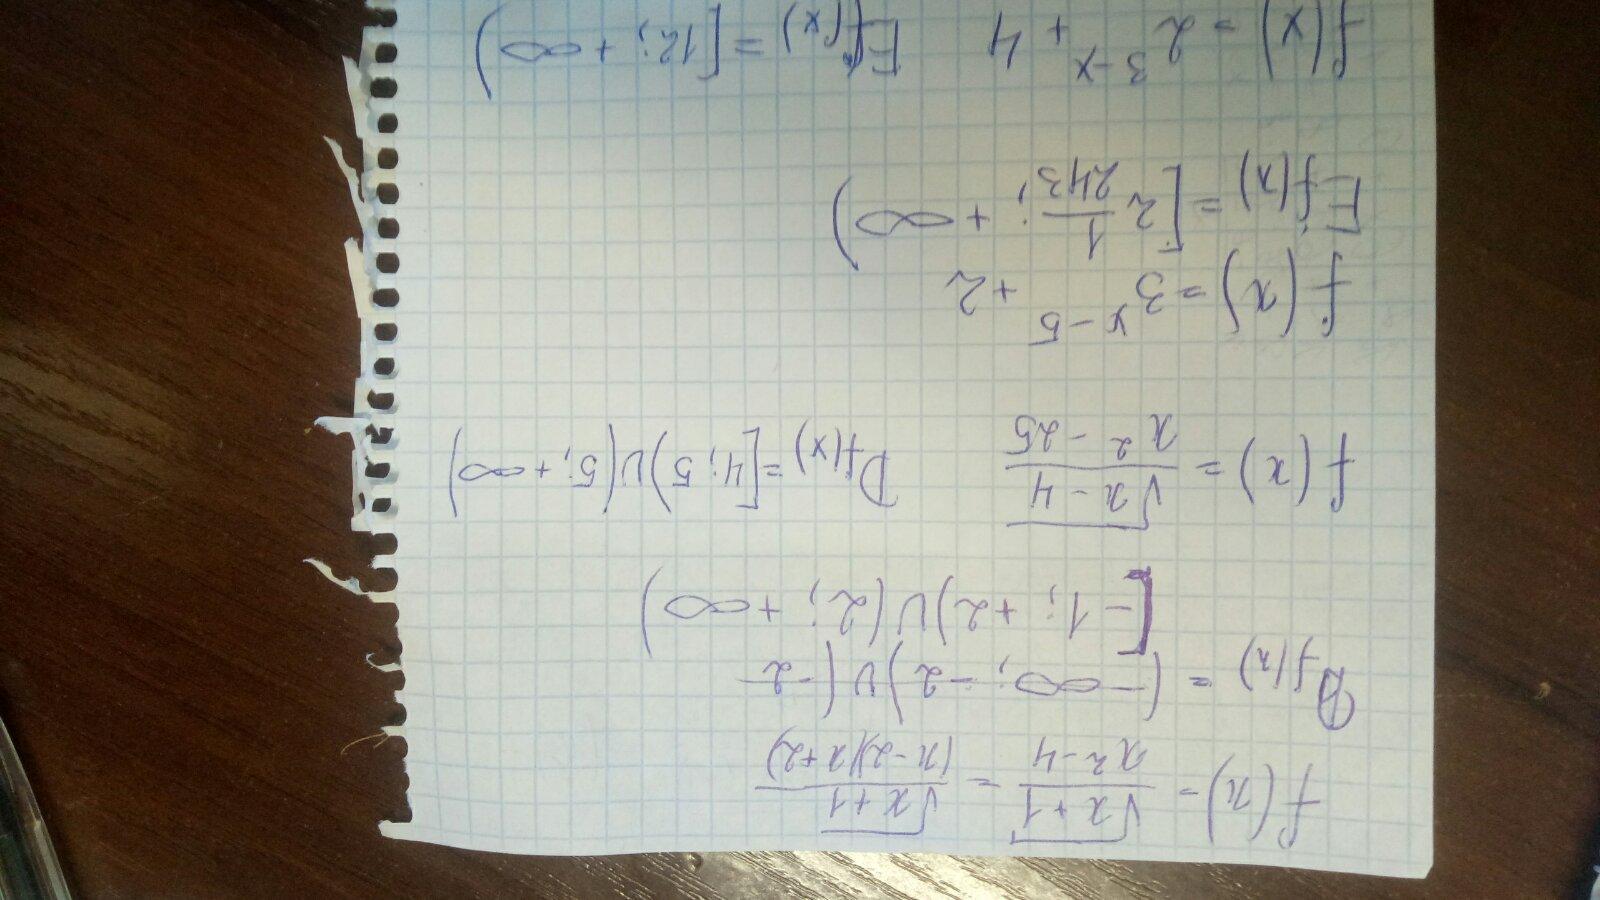 f(x) = √x+1 / x²-4 = √x+1 / (x-2)(x+2)
D f(x) = (-∞; -2) ∪ (-2
[-1; +2) ∪ (2; +∞)
f(x) = √x-4 / x²-25 D f(x) = [4; 5) ∪ (5; +∞)
f(x) = 3^x-5 + 2
E f(x) = [2 1/243; +∞)
f(x) = 2^3-x + 4 E f(x) = [12; +∞)